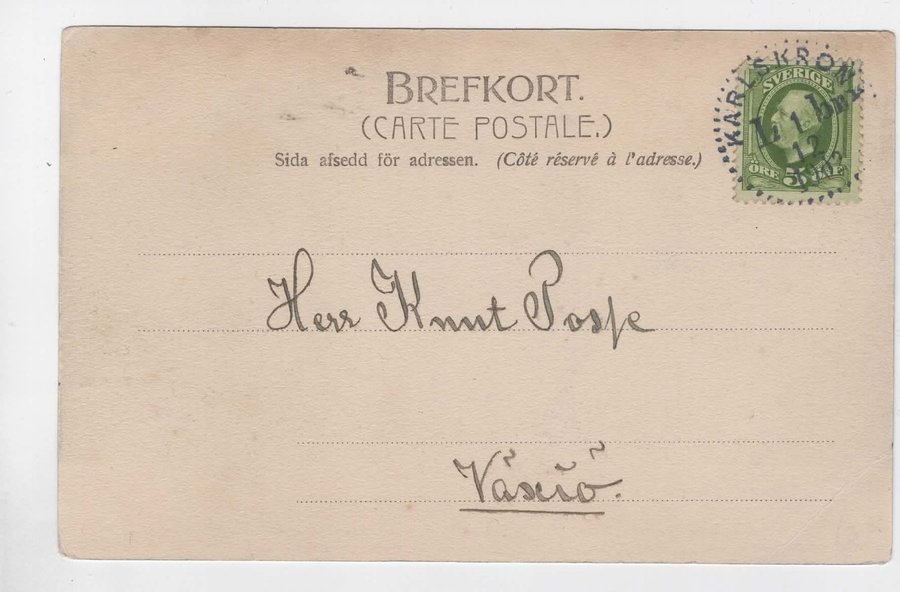 BREFKORT.
(CARTE POSTALE.)
Sida afsedd för adressen. (Côté réservé à l'adresse.)
KARLSKRONA
SVERIGE
12
1902
5 ÖRE 5 ÖRE
Herr Knut Posse
Växiö.